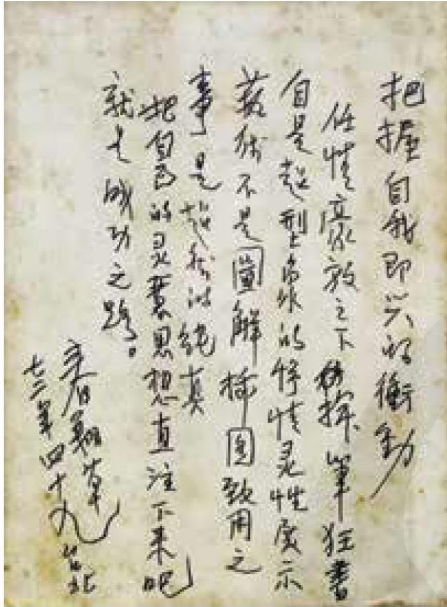 把握自我即兴的衝動
任情豪放之下揮筆狂書
自是超型象的悸情灵性展示
藝術不是圖解插圖致用之
事是超我的純真
把自己的灵慧思想直注下来吧
就是成功之路。
李春翔草
七二年四十九台北